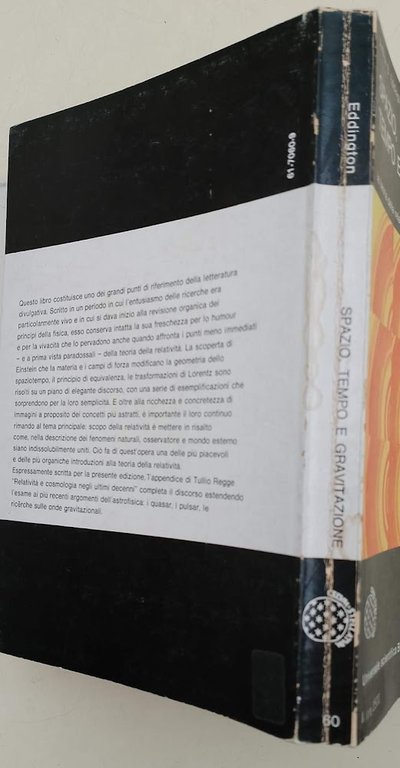 61-7060-9
Questo libro costituisce uno dei grandi punti di riferimento della letteratura
divulgativa. Scritto in un periodo in cui l'entusiasmo delle ricerche era
particolarmente vivo e in cui si dava inizio alla revisione organica dei
principi della fisica, esso conserva intatta la sua freschezza per lo humour
e per la vivacità che lo pervadono anche quando affronta i punti meno immediati
– e a prima vista paradossali – della teoria della relatività. La scoperta di
Einstein che la materia e i campi di forza modificano la geometria dello
spaziotempo, il principio di equivalenza, le trasformazioni di Lorentz sono
risolti su un piano di elegante discorso, con una serie di esemplificazioni che
sorprendono per la loro semplicità. E oltre alla ricchezza e concretezza di
immagini a proposito dei concetti più astratti, è importante il loro continuo
rimando al tema principale: scopo della relatività è mettere in risalto
come, nella descrizione dei fenomeni naturali, osservatore e mondo esterno
siano indissolubilmente uniti. Ciò fa di quest'opera una delle più piacevoli
e delle più organiche introduzioni alla teoria della relatività.
Espressamente scritta per la presente edizione, l'appendice di Tullio Regge
"Relatività e cosmologia negli ultimi decenni" completa il discorso estendendo
l'esame ai più recenti argomenti dell'astrofisica: i quasar, i pulsar, le
ricerche sulle onde gravitazionali.
Eddington
SPAZIO, TEMPO E GRAVITAZIONE
60
SPAZIO
TEMPO E
Universale scientifica